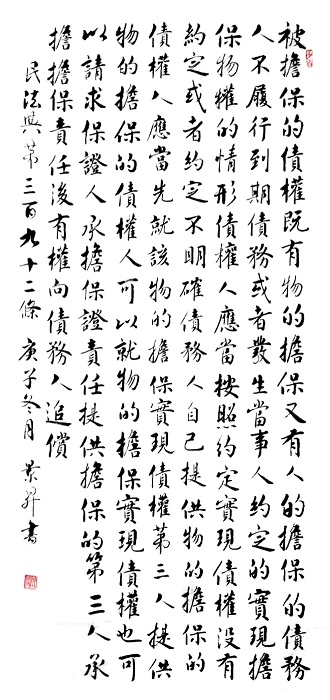 被擔保的債權既有物的擔保又有人的擔保的債務
人不履行到期債務或者發生當事人約定的實現擔
保物權的情形債權人應當按照約定實現債權沒有
約定或者約定不明確債務人自己提供物的擔保的
債權人應當先就該物的擔保實現債權第三人提供
物的擔保的債權人可以就物的擔保實現債權也可
以請求保證人承擔保證責任提供擔保的第三人承
擔擔保責任後有權向債務人追償
民法典第三百九十二條 庚子冬月 昇書